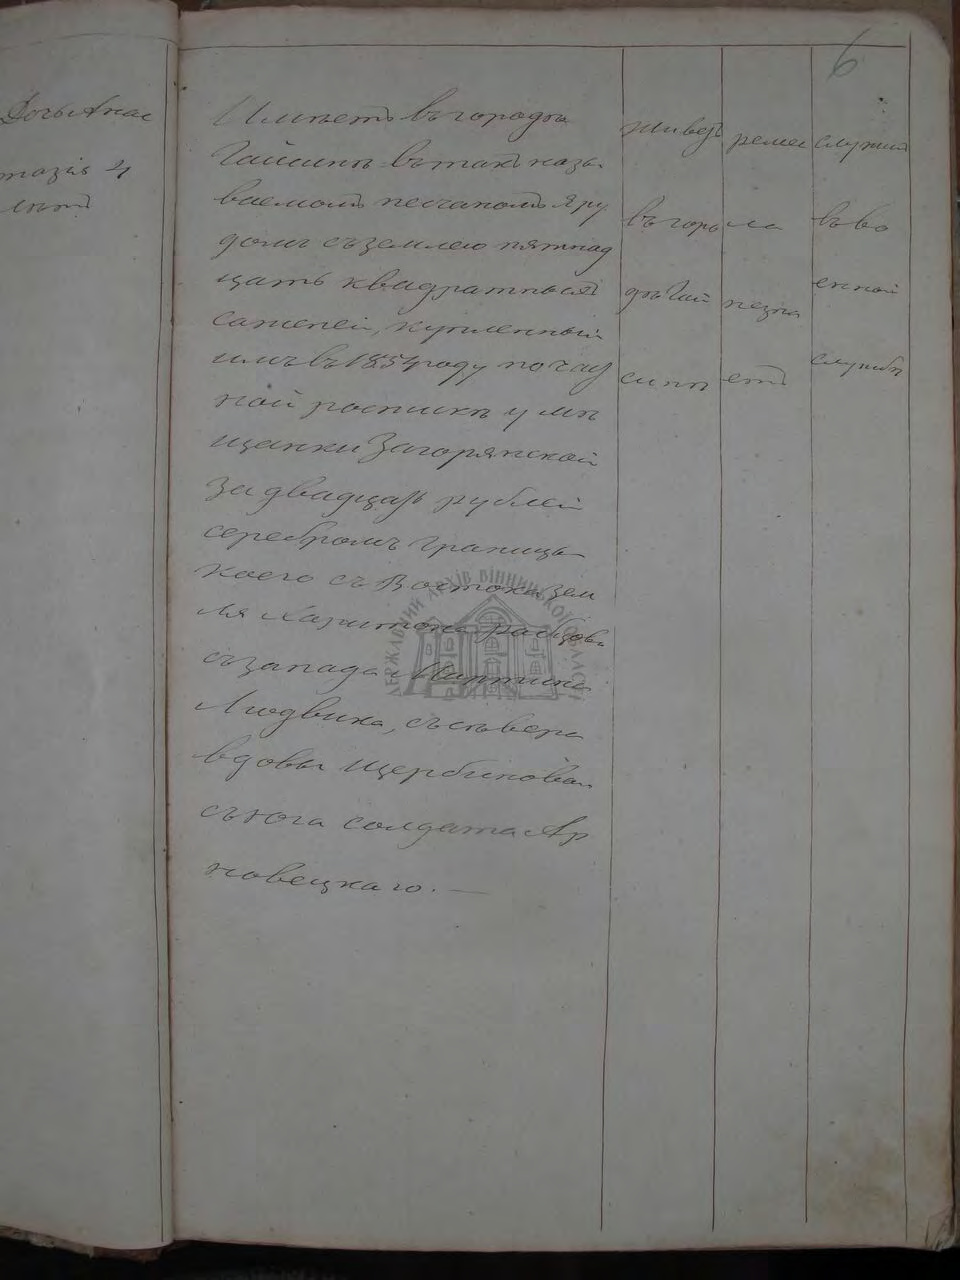 6
Дочь Анас
тазія 4
лѣтъ
Имѣетъ въ городѣ
Гайсинѣ въ такъ назы
ваемомъ песчаномъ Яру
домъ съ землею пятнад
цать квадратныхъ
саженей, купленный
имъ въ 1854 году по част
ной роспискѣ у мѣ
щанки Загорянской
за двадцать рублей
серебромъ границы
коего съ Востока зем
ля Харитона
съ запада Мартина
Людвика, съ сѣвера
вдовы Щербиновой
съ юга солдата Яр
новецкаго. —
живетъ
въ горо
дѣ Гай
синѣ
ремес
ла
незна
етъ
служитъ
въ во
енной
службѣ
ДЕРЖАВНИЙ АРХІВ ВІННИЦЬКОЇ ОБЛАСТІ